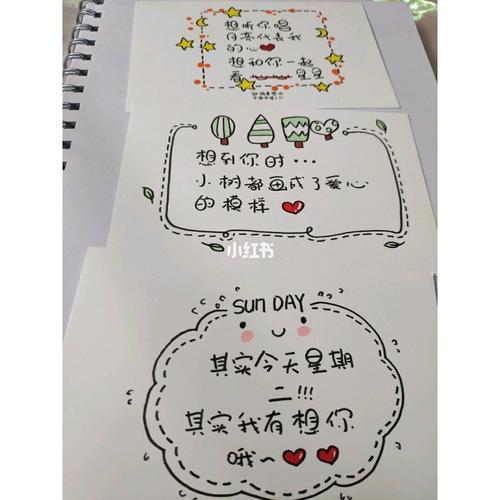 想听你唱
月亮代表我
的心
想和你一起
看星星
想到你时...
小树都画成了爱心
的模样
小红书
SUN DAY
其实今天星期
二!!!
其实我有想你
哦~